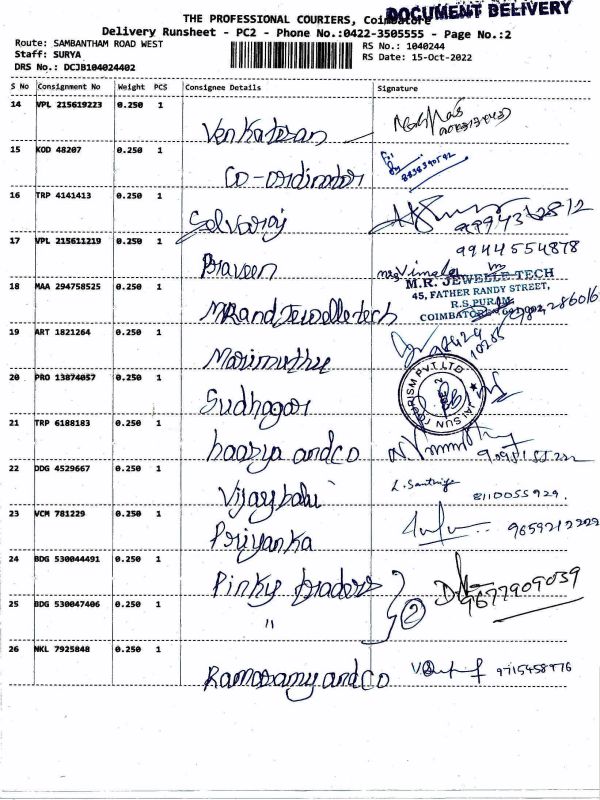 DOCUMENT DELIVERY
THE PROFESSIONAL COURIERS, Coimbatore
Delivery Runsheet - PC2 - Phone No.:0422-3505555 - Page No.:2
Route: SAMBANTHAM ROAD WEST RS No.: 1040244
Staff: SURYA RS Date: 15-Oct-2022
DRS No.: DCJB104024402
S No Consignment No Weight PCS Consignee Details Signature
14 VPL 215619223 0.250 1
Venkatesan
15 KOD 48207 0.250 1
Co-ordinator
16 TRP 4141413 0.250 1
Selvaraj
17 VPL 215611219 0.250 1 9944554878
Praveen
18 MAA 294758525 0.250 1 M.R. JEWELLE TECH
45, FATHER RANDY STREET,
R.S PURAM,
MRand Jewelle tech COIMBATORE
19 ART 1821264 0.250 1
Marimuthu
20 PRO 13874057 0.250 1 JAI SUN TOURISM PVT. LTD
Sudhagar
21 TRP 6188183 0.250 1
and co
22 DDG 4529667 0.250 1
Vijaybalu 8110055929.
23 VCM 781229 0.250 1
Priyanka 9659212222
24 BDG 530044491 0.250 1
Pinky traders 9677909059
25 BDG 530047406 0.250 1 2
"
26 NKL 7925848 0.250 1
Ramasamy and co 9715458776